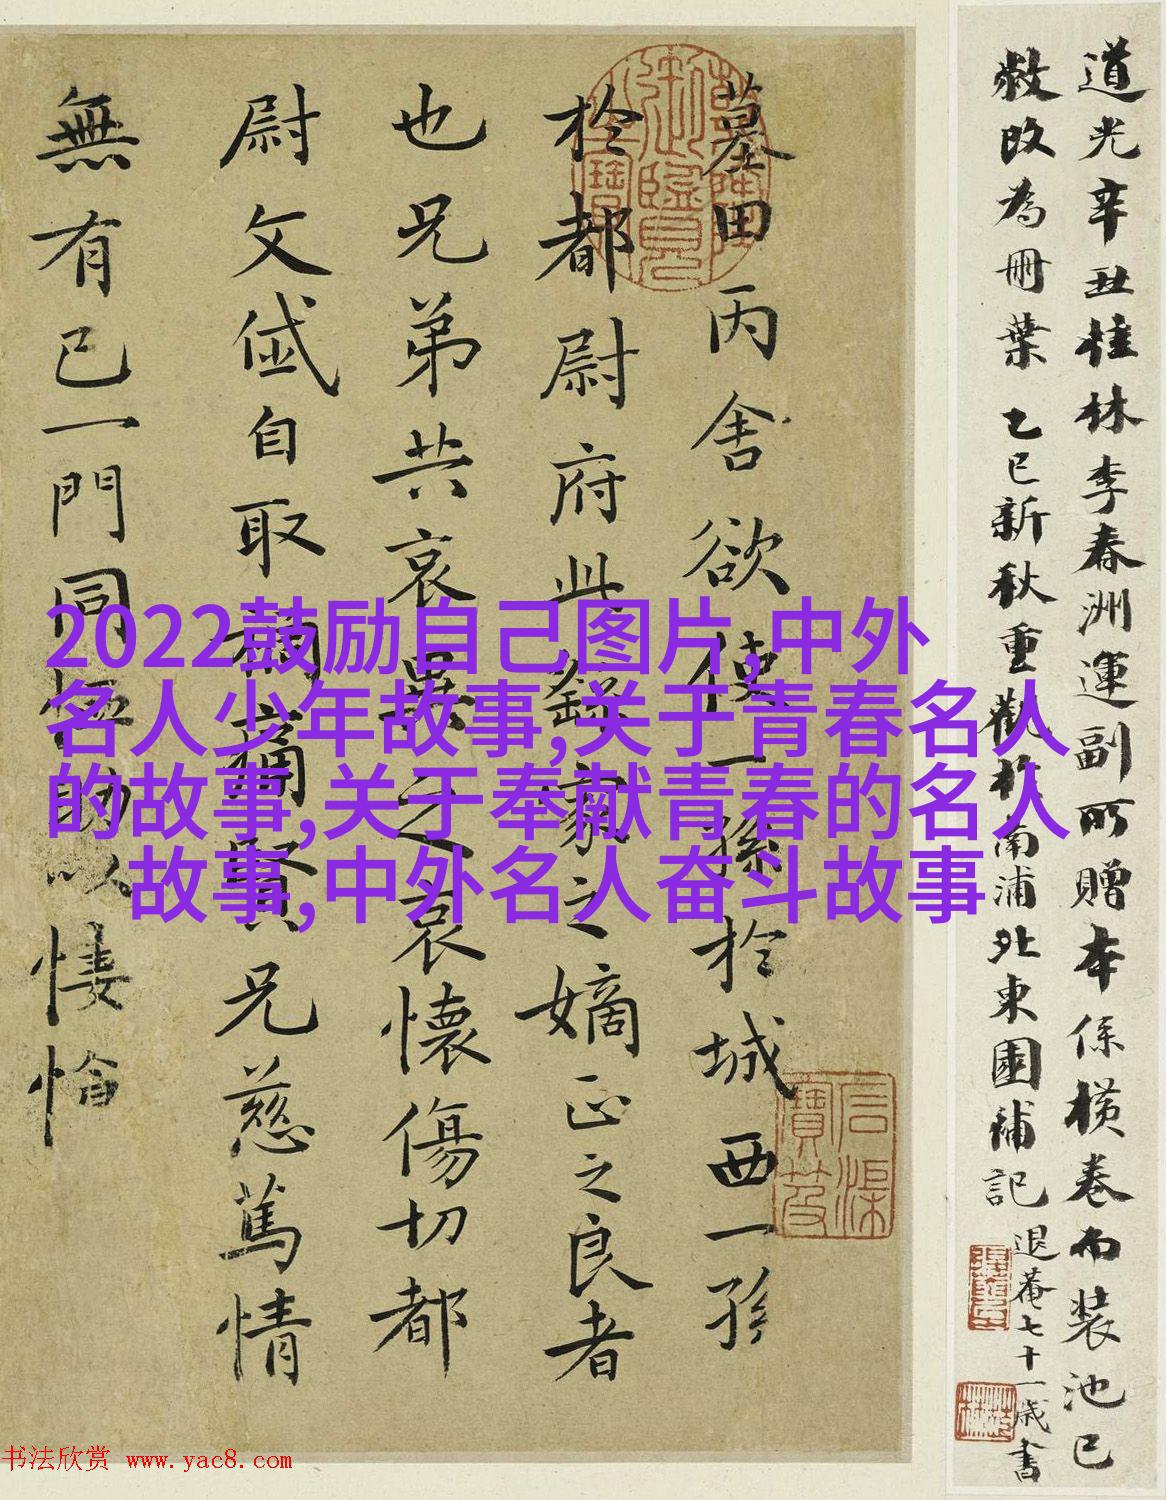 道光辛丑桂林李春洲運副所贈本係橫卷而裝池已
敝改為冊葉 乙巳新秋重觀於南浦北東園補記 退菴七十一歲書
墓田丙舍欲使一孫於城西一孫
於都尉府此繇家之嫡正之良者
也兄弟共哀異之哀懷傷切都
尉文岱自取禍痛賢兄慈篤情
無有已一門同恤助以悽愴
乾隆御覽之寶
石渠寶笈
2022鼓励自己图片,中外
名人少年故事,关于青春名人
的故事,关于奉献青春的名人
故事,中外名人奋斗故事
书法欣赏 www.yac8.com